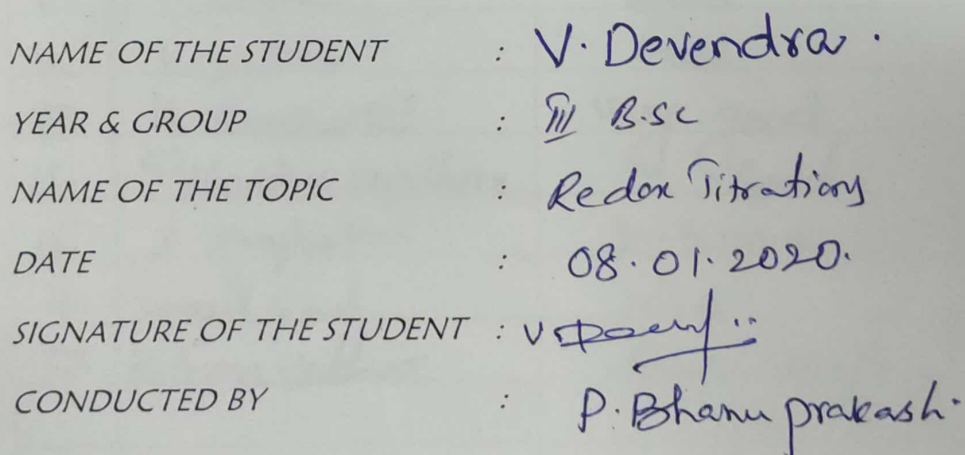 NAME OF THE STUDENT : V. Devendra.
YEAR & GROUP : III B.Sc
NAME OF THE TOPIC : Redox Titrations
DATE : 08.01.2020.
SIGNATURE OF THE STUDENT : V
CONDUCTED BY : P. Bhanu prakash.